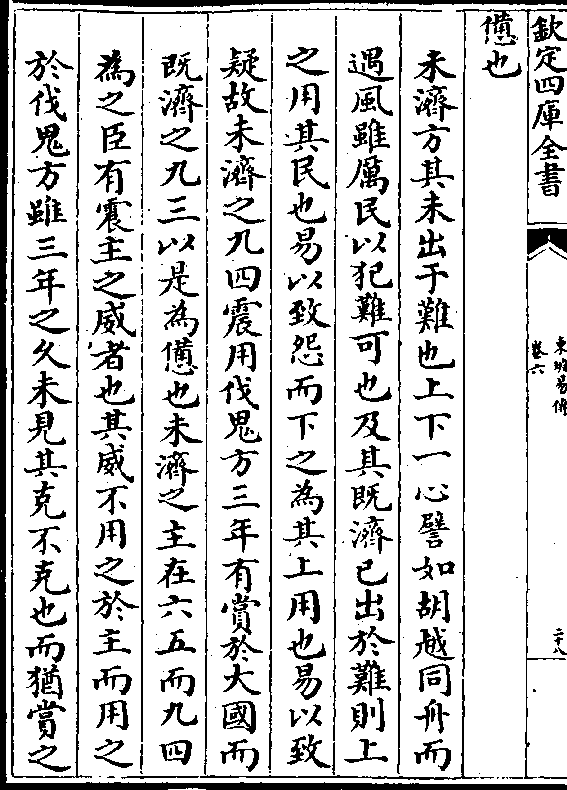 欽定四庫全書
東坡易傳
卷六
二十八
憊也
未濟方其未出于難也上下一心譬如胡越同舟而
遇風雖厲民以犯難可也及其既濟已出於難則上
之用其民也易以致怨而下之為其上用也易以致
疑故未濟之九四震用伐鬼方三年有賞於大國而
既濟之九三以是為憊也未濟之主在六五而九四
為之臣有震主之威者也其威不用之於主而用之
於伐鬼方雖三年之久未見其克不克也而猶賞之